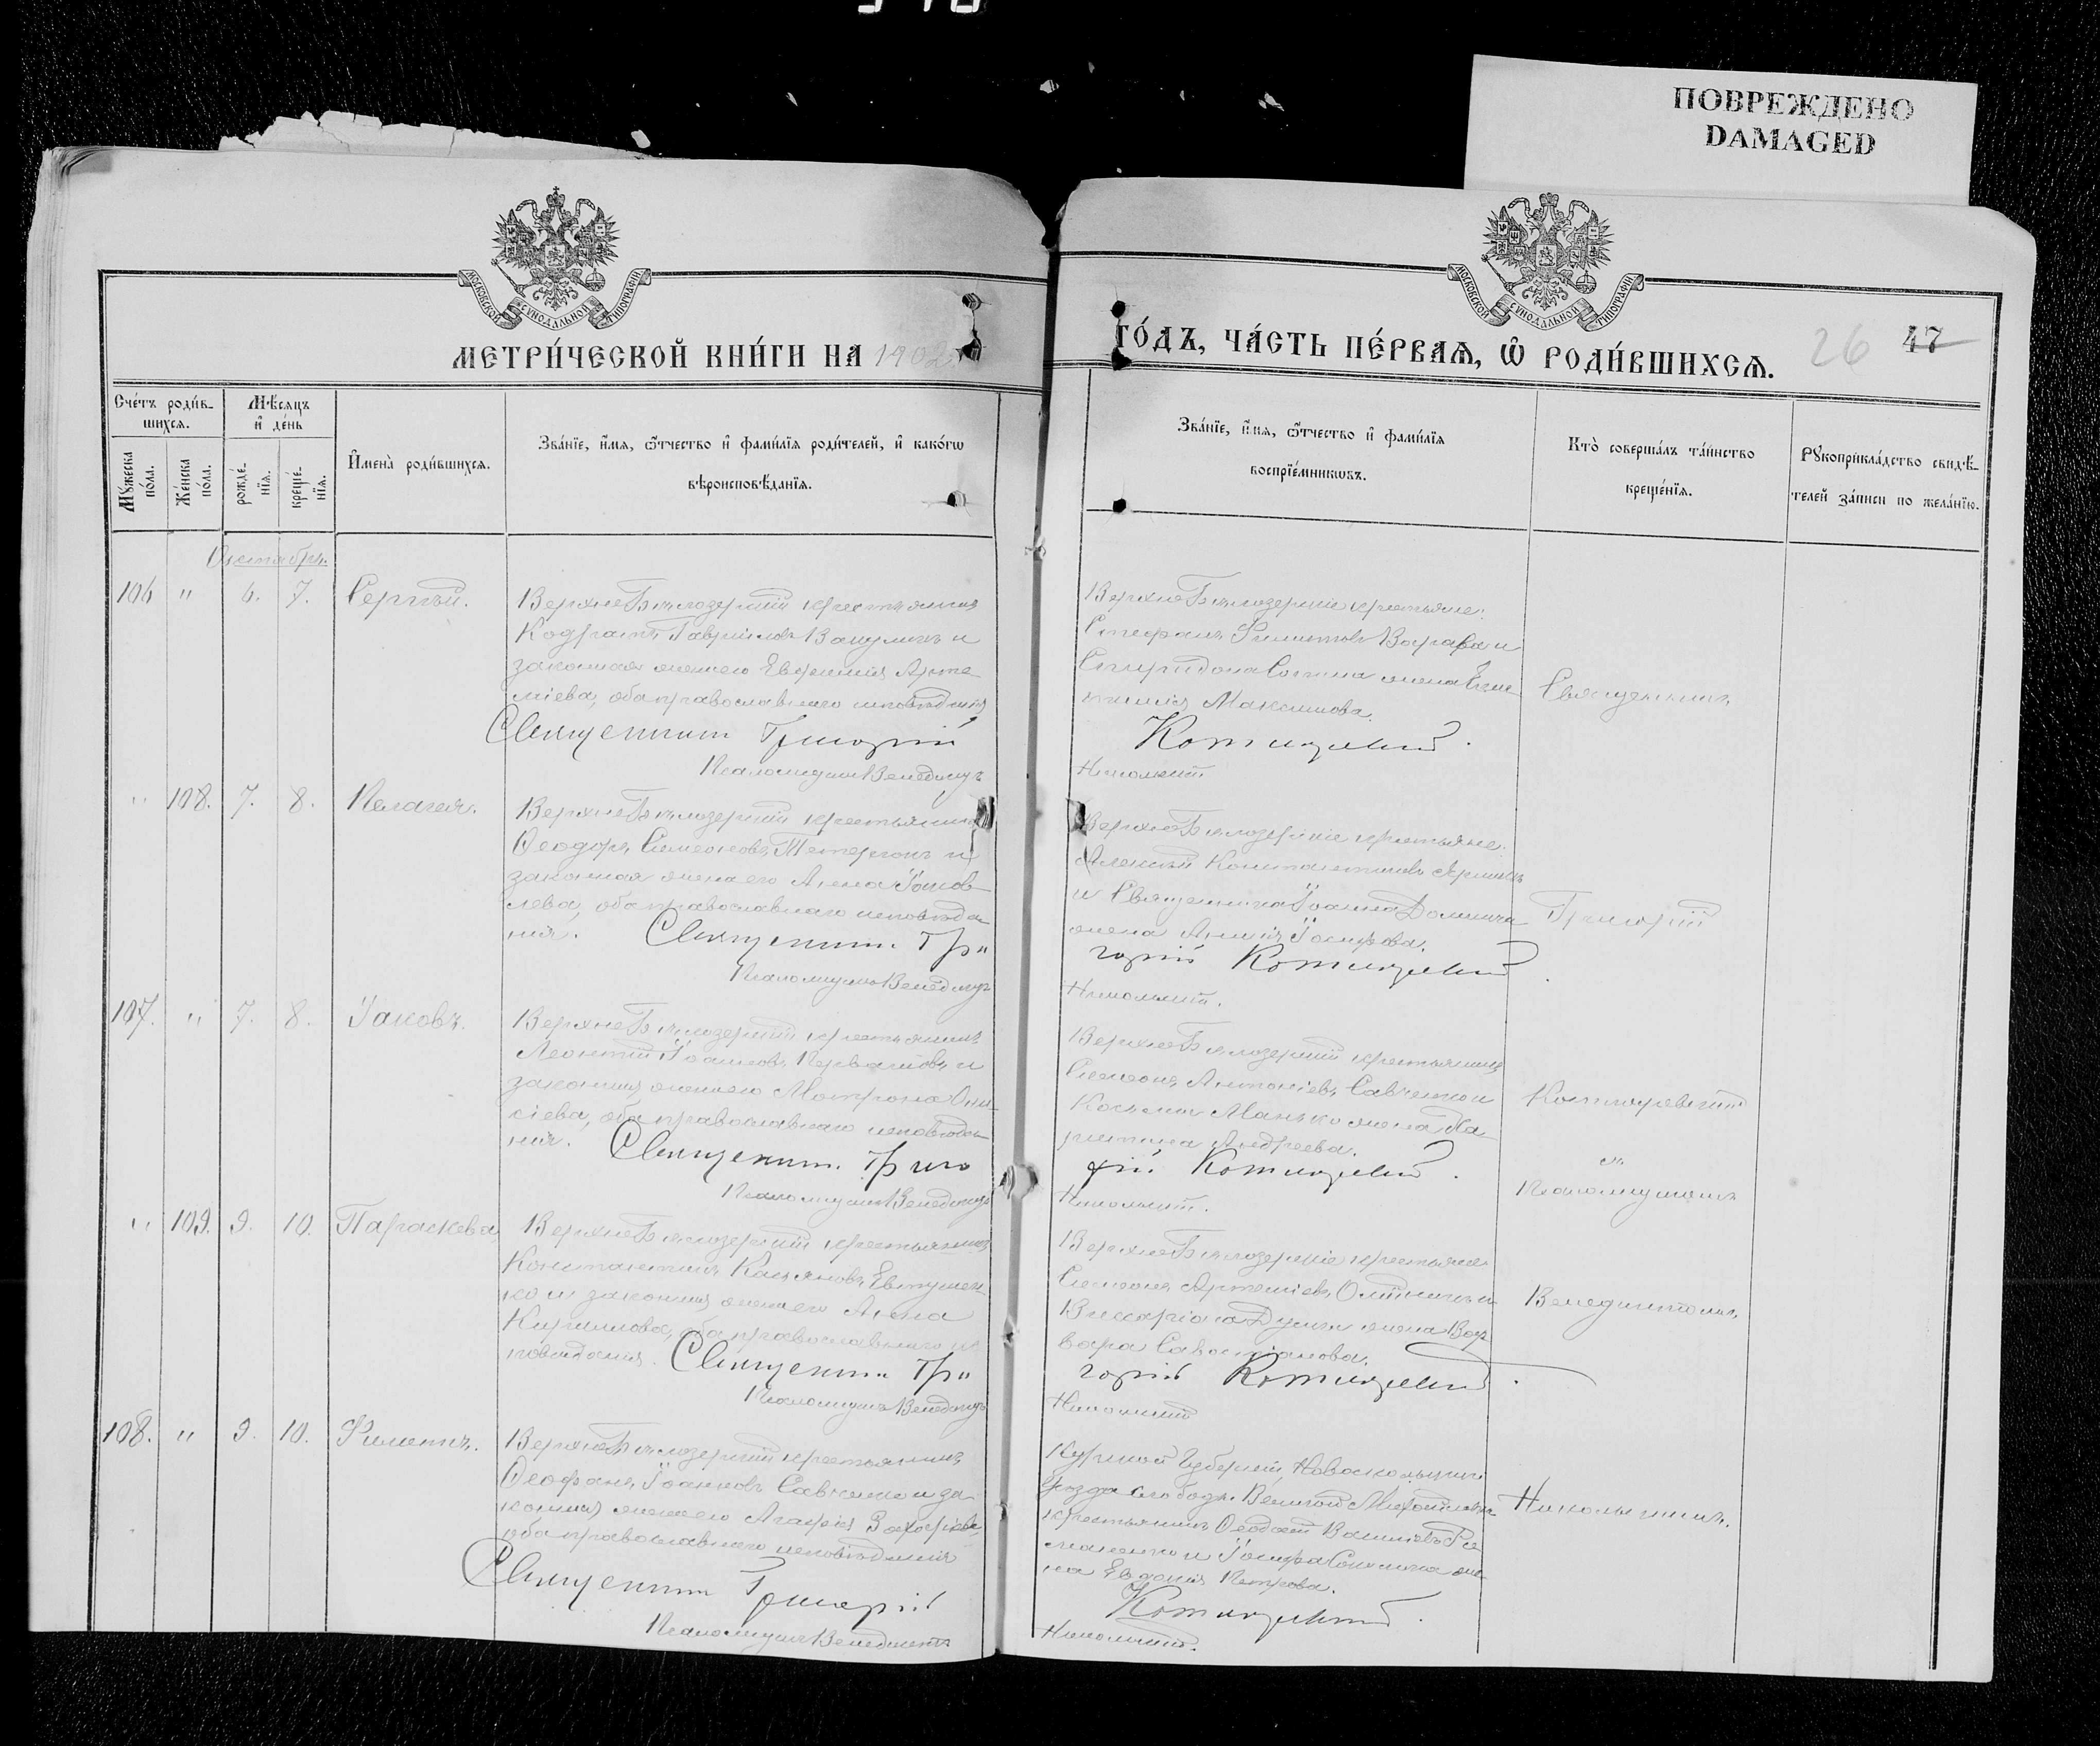 ПОВРЕЖДЕНО
DAMAGED
МОСКОВСКОЙ СѴНОДАЛЬНОЙ ТИПОГРАФІИ
МОСКОВСКОЙ СѴНОДАЛЬНОЙ ТИПОГРАФІИ
МЕТРИ́ЧЕСКОЙ КНИ́ГИ НА 1902
ГО́ДЪ, ЧА́СТЬ ПЕ́РВАѦ, Ѡ҆ РОДИ́ВШИХСѦ.
26 47
Сче́тъ роди́в-
шихсѧ.
Мꙋ́жеска по́ла.
Же́нска по́ла.
Мѣ́сѧцъ
и҆ де́нь
рожде́-
нїѧ.
креще́-
нїѧ.
И҆мена̀ роди́вшихсѧ.
Зва́нїе, и҆́мѧ, ѻ҆́тчество и҆ фами́лїѧ роди́телей, и҆ како́гѡ
вѣроисповѣ́данїѧ.
Зва́нїе, и҆́мѧ, ѻ҆́тчество и҆ фами́лїѧ
воспрїе́мникѡвъ.
Кто̀ соверша́лъ та́инство
креще́нїѧ.
Рꙋкоприкла́дство свидѣ́-
телей за́писи по жела́нїю.
Октября.
106 " 6. 7. Сергѣй.
ВерхнеБѣлозерскій крестьянинъ
Кодратъ Гавріиловъ Вакулинъ и
законная жена его Евфимія Арте
міева, оба православнаго исповѣданія
Священникъ Григорій
Псаломщикъ Венедиктъ
ВерхнеБѣлозерскіе крестьяне:
Стефанъ Филиповъ Варава и
Спиридона жена
Максимова.
Котляревскій.
Никольскій
Священникъ
" 108. 7. 8. Пелагея.
ВерхнеБѣлозерскій крестьянинъ
Ѳеодоръ Симеоновъ и
законная жена его Анна Іаков-
лева, оба православнаго исповѣда
нія. Священникъ Гри
Псаломщикъ Венедиктъ
ВерхнеБѣлозерскіе крестьяне:
Алексѣй Константиновъ
и Священника Іоанна
жена Іосифова.
горій Котляревскій.
Никольскій.
Григорій
107. " 7. 8. Іаковъ.
ВерхнеБѣлозерскій крестьянинъ
Леонтій Іоанновъ и
законная жена его Матрона Они
сіева, оба православнаго исповѣда
нія. Священникъ Григо
Псаломщикъ Венедиктъ
ВерхнеБѣлозерскій крестьянинъ
Симеонъ Антоніевъ Савченко и
Косьмы Манько жена Ха
ритина Андреева.
рій Котляревскій.
Никольскій.
Котляревскій
съ
Псаломщикомъ
" 109. 9. 10. Параскева
ВерхнеБѣлозерскій крестьянинъ
Константинъ Касьяновъ Евтушен
ко и законная жена его Анна
Кириллова, оба православнаго ис
повѣданія. Священникъ Гри
Псаломщикъ Венедиктъ
ВерхнеБѣлозерскіе крестьяне
Симеонъ Артеміевъ и
Виссаріона жена Вар
вара Савостіанова.
горій Котляревскій.
Никольскій
Венедиктомъ
108. " 9. 10. Филиппъ.
ВерхнеБѣлозерскій крестьянинъ
Ѳеофанъ Іоанновъ Савченко и за
конная жена его Агафія Захаріева,
оба православнаго исповѣданія
Священникъ Григорій
Псаломщикъ Венедиктъ
Курской Губерніи, Новооскольскаго
уѣзда слободы Великой Михайловки
крестьянинъ Ѳеодосій Ро
маненко и Іосифа же
на Евдокія Петрова.
Котляревскій.
Никольскій.
Никольскимъ.